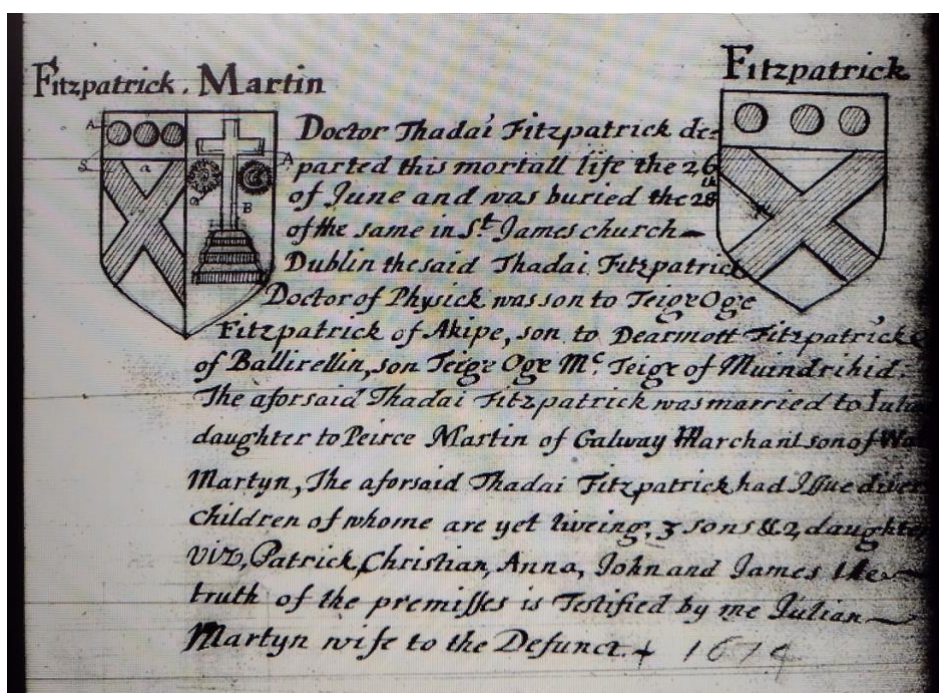 Fitzpatrick. Martin
Fitzpatrick
Doctor Thadai Fitzpatrick de=
parted this mortall life the 26
of June and was buried the 28th
of the same in St. James church
Dublin the said Thadai Fitzpatrick
Doctor of Physick was son to Teige Oge
Fitzpatrick of Akipe, son to Dearmott Fitzpatrick
of Ballirellin, son Teige Oge Mc. Teige of Muindrihid.
The aforsaid Thadai Fitzpatrick was married to
daughter to Peirce Martin of Galway Marchant son of
Martyn, The aforsaid Thadai Fitzpatrick had Issue
children of whome are yet liveing, 3 sons & 2 daughter
vizt, Patrick, Christian, Anna, John and James the
truth of the premisses is Testified by me Julian
Martyn wife to the Defunct. + 1674
A
S
a
A
a
B